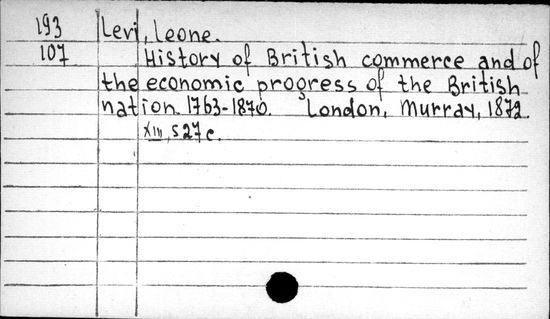 193 Levi, Leone.
107 History of British commerce and of
the economic progress of the British
nation. 1763-1870. London, Murray, 1872.
XIII, 527 c.